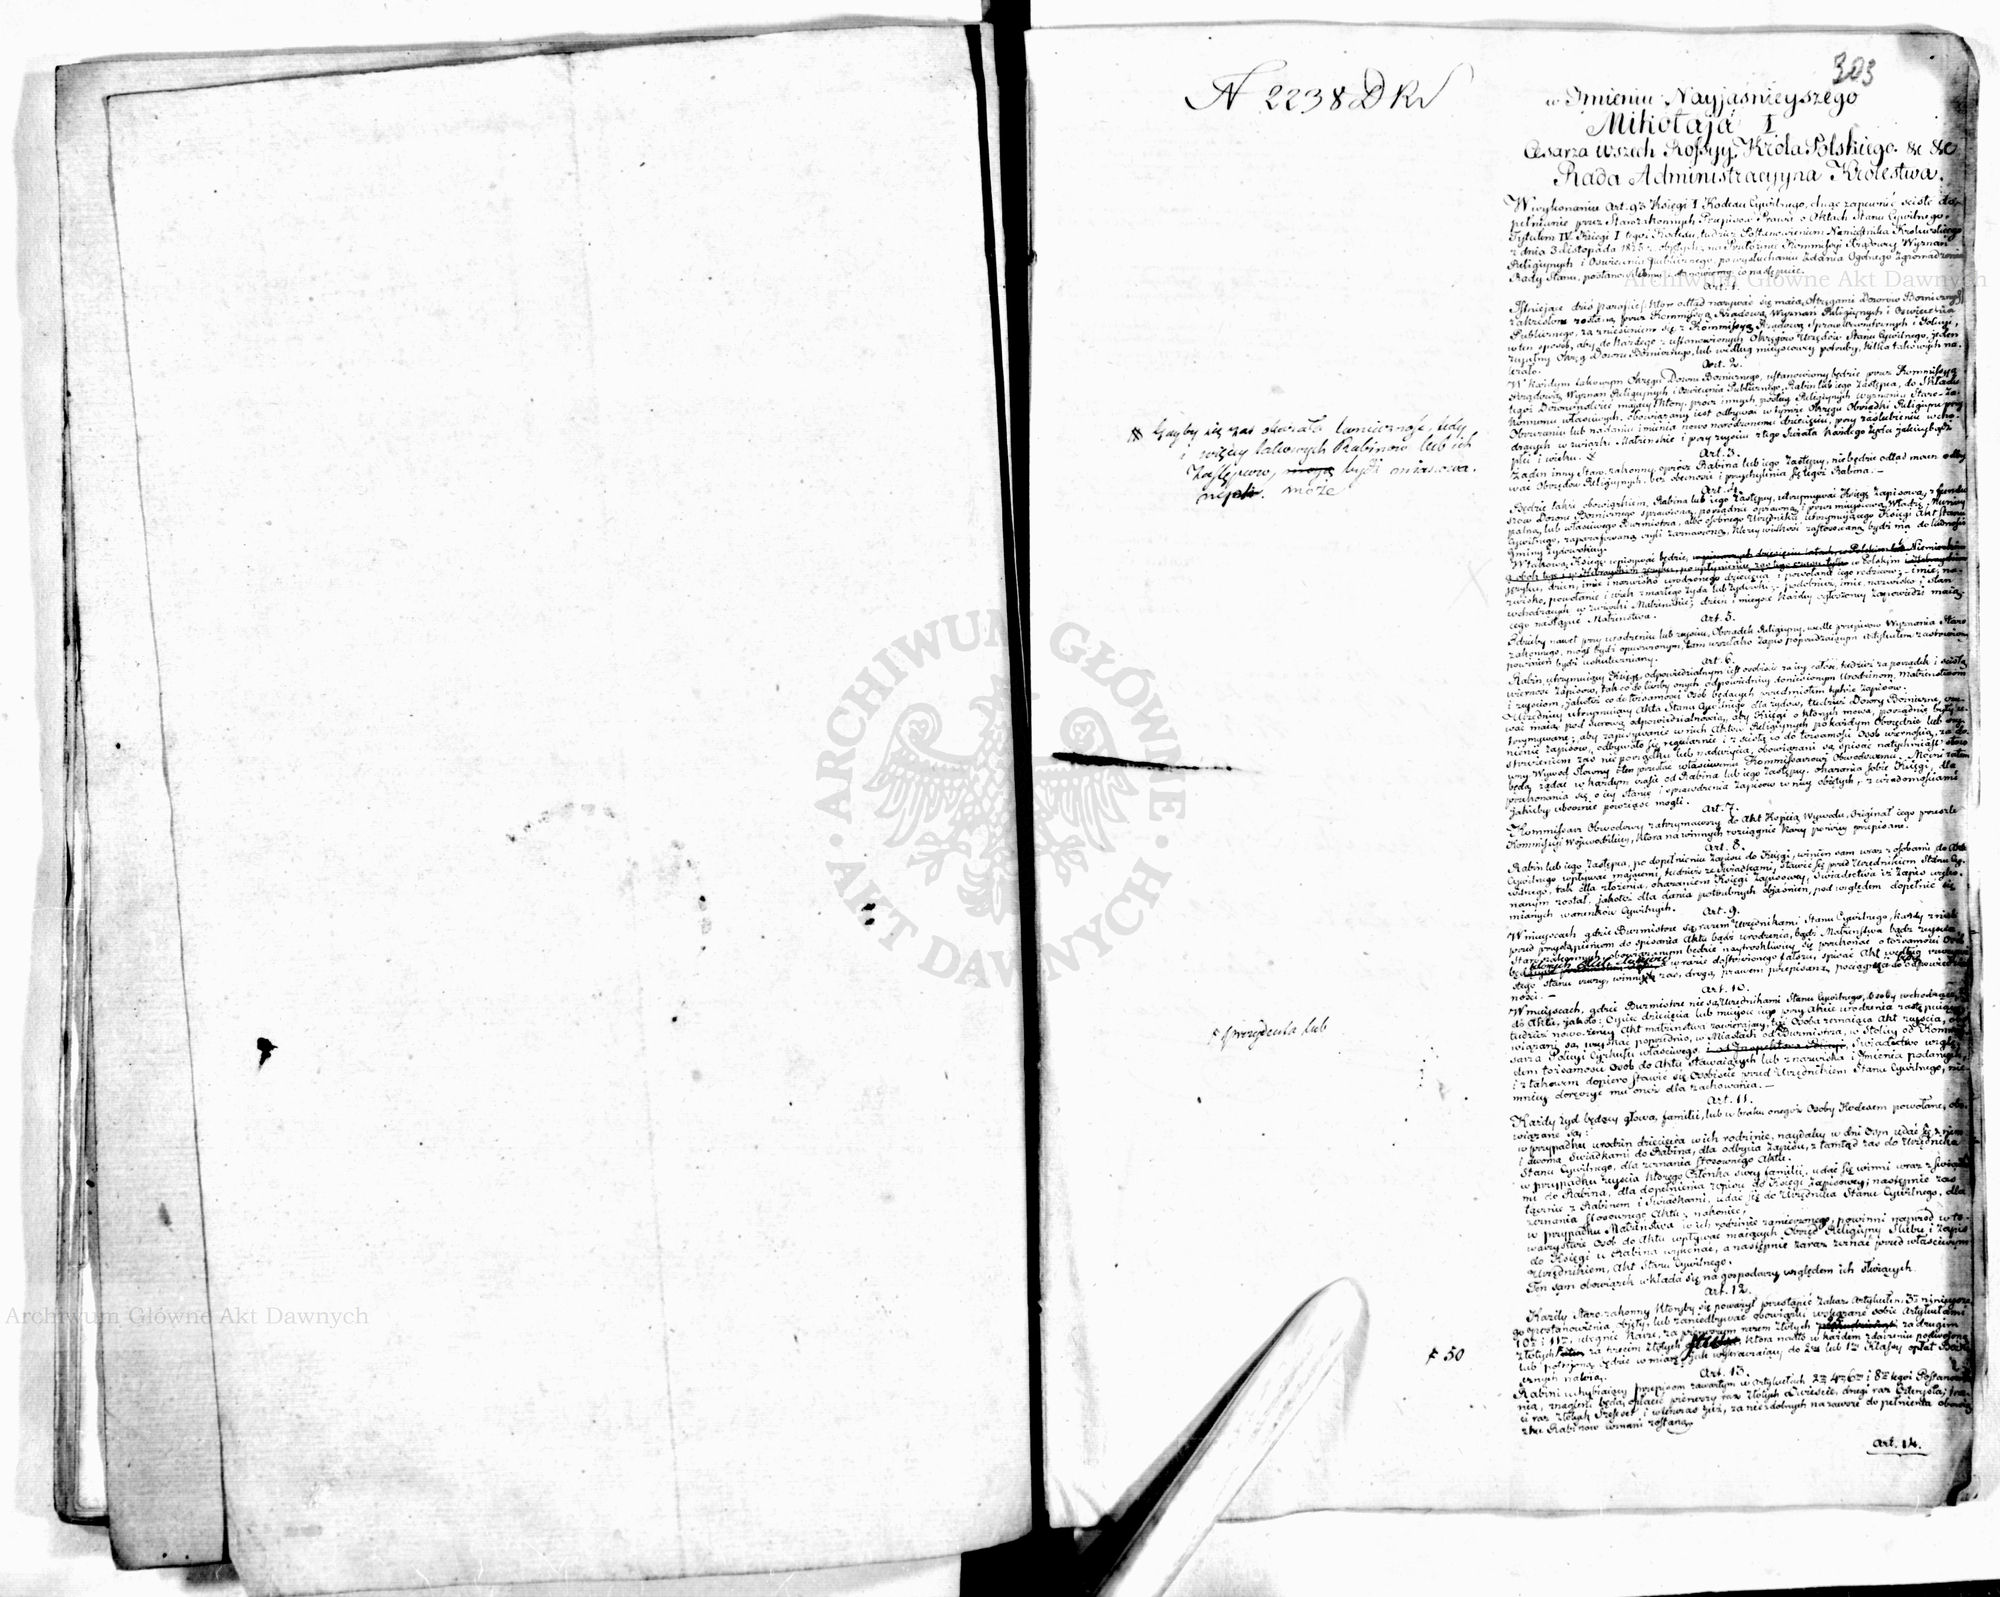 303
N 2238 DKW
w Imieniu Nayjaśnieyszego
Mikołaja I
Cesarza wszech Rossyy, Króla Polskiego &c &c
Rada Administracyyna Królestwa.
W wykonaniu Art. 93 Księgi I Kodexu Cywilnego, chcąc zapewnić ścisłe do-
pełnianie przez Starozakonnych Przepisów Prawa o Aktach Stanu Cywilnego,
Tytułem IV Księgi I tegoż Kodexu, tudzież Postanowieniem Namiestnika Królewskiego
z dnia 3 Listopada 1825 r. objętych; na Przełożenie Kommissyi Rządowey Wyznań
Religiynych i Oświecenia Publicznego, po wysłuchaniu Zdania Ogólnego Zgromadzenia
Rady Stanu, postanowiliśmy i stanowiemy, co następuie.
Art. 1.
Istniejące dziś parafie, które odtąd nazywać się maią Okręgami Dozorów Bożniczych,
zakreślone zostaną przez Kommissyą Rządową Wyznań Religiynych i Oświecenia
Publicznego, za zniesieniem się z Kommissyą Rządową Spraw Wewnętrznych i Policyi,
w ten sposób, aby do każdego z ustanowionych Okręgów Urzędów Stanu Cywilnego, jeden
zupełny Okręg Dozoru Bożniczego, lub według mieyscowey potrzeby, kilka takowych na-
leżało.
Art. 2.
W każdym takowym Okręgu Dozoru Bożniczego, ustanowiony będzie przez Kommissyą
Rządową Wyznań Religiynych i Oświecenia Publicznego, Rabin lub iego Zastępca, do Składu
tegoż Dozoru należeć maiący, który, prócz innych, podług Religiynych Wyznaniu Staro-Za-
konnemu właściwych, obowiązany iest odbywać w tymże Okręgu Obrządki Religiyne przy
Obrzezaniu lub nadaniu imienia nowo narodzonemu dziecięciu, przy zaślubieniu wcho-
dzących w związki Małżeńskie i przy zeyściu z tego Świata każdego Żyda jakieybądź
płci i wieku.
# Gdyby się zaś okazała tamieczność, tedy
i więcey takowych Rabinów lub ich
Zastępców, mogą bydź mianowa-
nych. może
Art. 3.
Żaden inny Staro-zakonny, oprócz Rabina lub iego Zastępcy, nie będzie odtąd mocen odby-
wać Obrzędów Religiynych, bez obecności i przychylenia się tegoż Rabina.—
Art. 4.
Będzie także obowiązkiem, Rabina lub iego Zastępcy, utrzymywać Księgę Zapisową, z fundu-
szów Dozoru Bożniczego sprawioną, porządnie oprawną i przez mieyscową Władzę Municy-
palną, lub właściwego Burmistrza, albo osobnego Urzędnika utrzymuiącego Księgi Akt Stanu
Cywilnego, zaparafowaną czyli zaznaczoną, którey wielkość zastosowana bydź ma do ludności
Gminy żydowskiey.
W takową Księgę wpisywać będzie, w pierwszych dziesięciu latach, w Polskim lub Niemieckim
a obok tego i w Hebrayskim języku, po upłynieniu zaś tego czasu tylko w Polskim i Hebrayskim
języku, dzień, imie i nazwisko urodzonego dziecięcia i powołanie iego rodziców;– imie, na-
zwisko, powołanie i wiek zmarłego Żyda lub Żydówki;– podobnież imie, nazwisko i stan
wchodzących w związki Małżeńskie; dzień i mieysce każdey ogłoszoney Zapowiedzi maią-
cego nastąpić Małżeństwa.
Art. 5.
Gdziby nawet przy urodzeniu lub zeyściu, Obrządek Religiyny, wedle przepisów Wyznania Staro-
zakonnego, mógł bydź opuszczonym, tam wszakże Zapis poprzedzaiącym Artykułem zastrzeżony
powinien bydź uskuteczniany.
Art. 6.
Rabin, utrzymuiący Księgę, odpowiedzialnym iest osobiście za iey całość, tudzież za porządek i ścisłą
wierność Zapisów, tak co do liczby onych odpowiedniey doniesionym Urodzinom, Małżeństwom
i zeyściom, jakoteż co do tożsamości Osób będących przedmiotem tychże Zapisów.
Urzędnicy utrzymuiący Akta Stanu Cywilnego dla Żydów, tudzież Dozory Bożnicze, czu-
wać maią, pod surową odpowiedzialnością, aby Księgi o których mowa, porządnie były u-
trzymywane; aby zapisywanie w nich Aktów Religiynych po każdym Obrzędzie lub urz-
nienie Zapisów, odbywało się regularnie i z ścisłą co do tożsamości Osób wiernością, za do-
strzeżeniem zaś nieporządku lub nadużycia, obowiązani są spisać natychmiast stoso-
wny Wywód Słowny i ten przesłać właściwemu Kommissarzowi Obwodowemu. Mocni zatem
będą żądać w każdym czasie od Rabina lub iego Zastępcy, okazania sobie Księgi, dla
przekonania się o iey stanie i sprawdzenia Zapisów w niey obiętych, z wiadomościami
jakieby ubocznie powziąść mogli.
Art. 7.
Kommissarz Obwodowy zatrzymawszy do Akt Kopiią Wywodu, Originał iego prześle
Kommissyi Woiewódzkiey, która na winnych rozciągnie kary poniżey przepisane.
Art. 8.
Rabin lub iego Zastępca, po dopełnieniu Zapisu do Księgi, winien sam wraz z osobami do Aktu
Cywilnego wpływać maiącemi, tudzież ze świadkami, stawić się przed Urzędnikiem Stanu Cy-
wilnego, tak dla złożenia, okazaniem Księgi Zapisowey, Świadectwa iż Zapis wyko-
nanym został, jakoteż dla dania potrzebnych objaśnień, pod względem dopełnie się
mianych warunków Cywilnych.
Art. 9.
W mieyscach gdzie Burmistrze są razem Urzędnikami Stanu Cywilnego, każdy z nich
przed przystąpieniem do spisania Aktu bądź urodzenia, bądź Małżeństwa bądź zeyścia
Starozakonnych, obowiązanym będzie naytroskliwiey się przekonać o tożsamości Osób
których Akt dotyczy, w razie dostrzeżonego fałszu, spisać Akt według rzeczywi-
stego Stanu rzeczy, winnych zaś, drogą prawem przepisaną pociągnąć do odpowiedzial-
ności.—
Art. 10.
W mieyscach, gdzie Burmistrze nie są Urzędnikami Stanu Cywilnego, Osoby wchodzące
do Aktu, jakoto: Ojciec dziecięcia lub mieysce iego przy Akcie urodzenia zastępuiący,
tudzież nowo-żeńcy Akt małżeństwa zawieraiący, tyż Osoba zeznaiąca Akt zeyścia, obo-
wiązani są uzyskać poprzednio, w Miastach od # Burmistrza, w Stolicy od Kommis-
sarza Policyi Cyrkułu właściwego, i od Inspektora Policyi, Świadectwo wzglę-
dem tożsamości Osób do Aktu stawaiących lub z nazwiska i Imienia podanych,
i z takowem dopiero stawić się Osobiście przed Urzędnikiem Stanu Cywilnego, nie-
mniey doręczyć mu onoż dla zachowania.—
# Prezydenta lub
Art. 11.
Każdy Żyd będący głową familii, lub w braku onegoż Osoby Kodexem powołane, obo-
wiązane są:
w przypadku urodzin dziecięcia w ich rodzinie, naydaley w dni Ośm udać się z niem
i dwoma Świadkami do Rabina, dla odbycia Zapisu, z tamtąd zaś do Urzędnika
Stanu Cywilnego, dla zeznania stosownego Aktu.
w przypadku zeyścia którego Członka swey familii, udać się winni wraz z świadka-
mi do Rabina, dla dopełnienia wpisu do Księgi Zapisowey; następnie zaś
łącznie z Rabinem i świadkami, udać się do Urzędnika Stanu Cywilnego, dla
zeznania stosownego Aktu; nakoniec,
w przypadku Małżeństwa w ich rodzinie zamierzonego, powinni naprzód w to-
warzystwie Osób do Aktu wpływać maiących Obrzęd Religiyny Ślubu i Zapis
do Księgi u Rabina wykonać, a następnie zaraz zeznać przed właściwym
Urzędnikiem, Akt Stanu Cywilnego.
Ten sam obowiązek wkłada się na gospodarzy względem ich służących.
Art. 12.
Każdy Staro-zakonny któryby się poważył przestąpić zakaz Artykułem 3m ninieysze-
go postanowienia objęty, lub zaniedbywać obowiązki wskazane sobie Artykułami
10m i 11m, ulegnie karze, za pierwszym razem złotych za drugim
złotych za trzecim złotych która nadto w każdem zdarzeniu podwojoną
lub potrójną będzie w miarę, jak wykraczaiący do 2ey lub 1ey Klassy opłat Boż-
niczych należy.
F 50
Art. 13.
Rabini uchybiaiący przepisom zawartym w Artykułach 2m 4m 6m i 8m tegoż Postanowie-
nia, znagleni będą opłacić pierwszy raz złotych Dwieście, drugi raz Czterysta, trze-
ci raz złotych Sześćset, i wówczas już, za niezdolnych na zawsze do pełnienia obowią-
zku Rabinów uznani zostaną.
Art. 14.
Archiwum Główne Akt Dawnych
Archiwum Główne Akt Dawnych
ARCHIWUM GŁÓWNE
AKT DAWNYCH